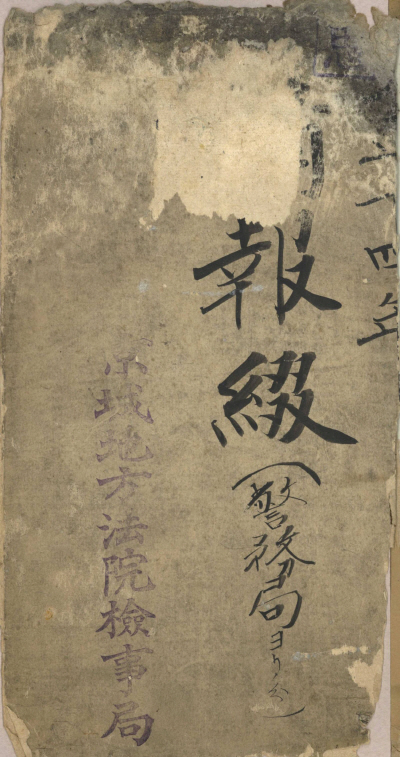 四年
報綴
(警務局ヨリノ分)
京城地方法院檢事局